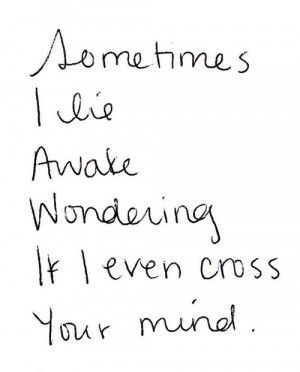 Sometimes
I lie
Awake
Wondering
If I even cross
Your mind.